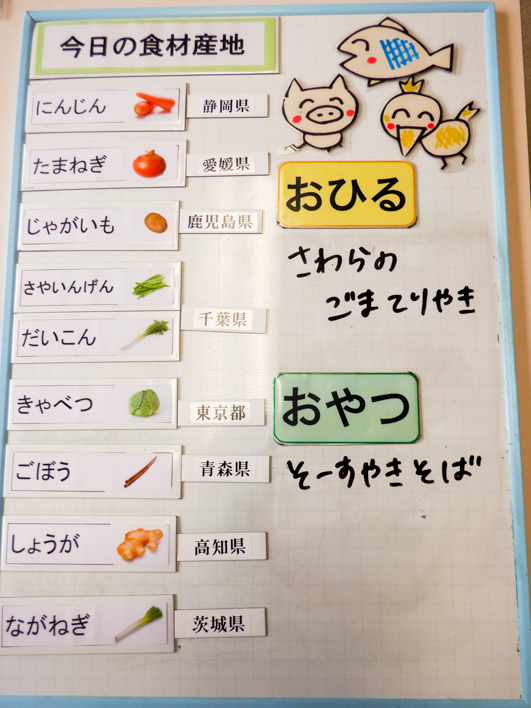 今日の食材産地
にんじん 静岡県
たまねぎ 愛媛県
じゃがいも 鹿児島県
さやいんげん
千葉県
だいこん
きゃべつ 東京都
ごぼう 青森県
しょうが 高知県
ながねぎ 茨城県
おひる
さわらの
ごまてりやき
おやつ
そーすやきそば